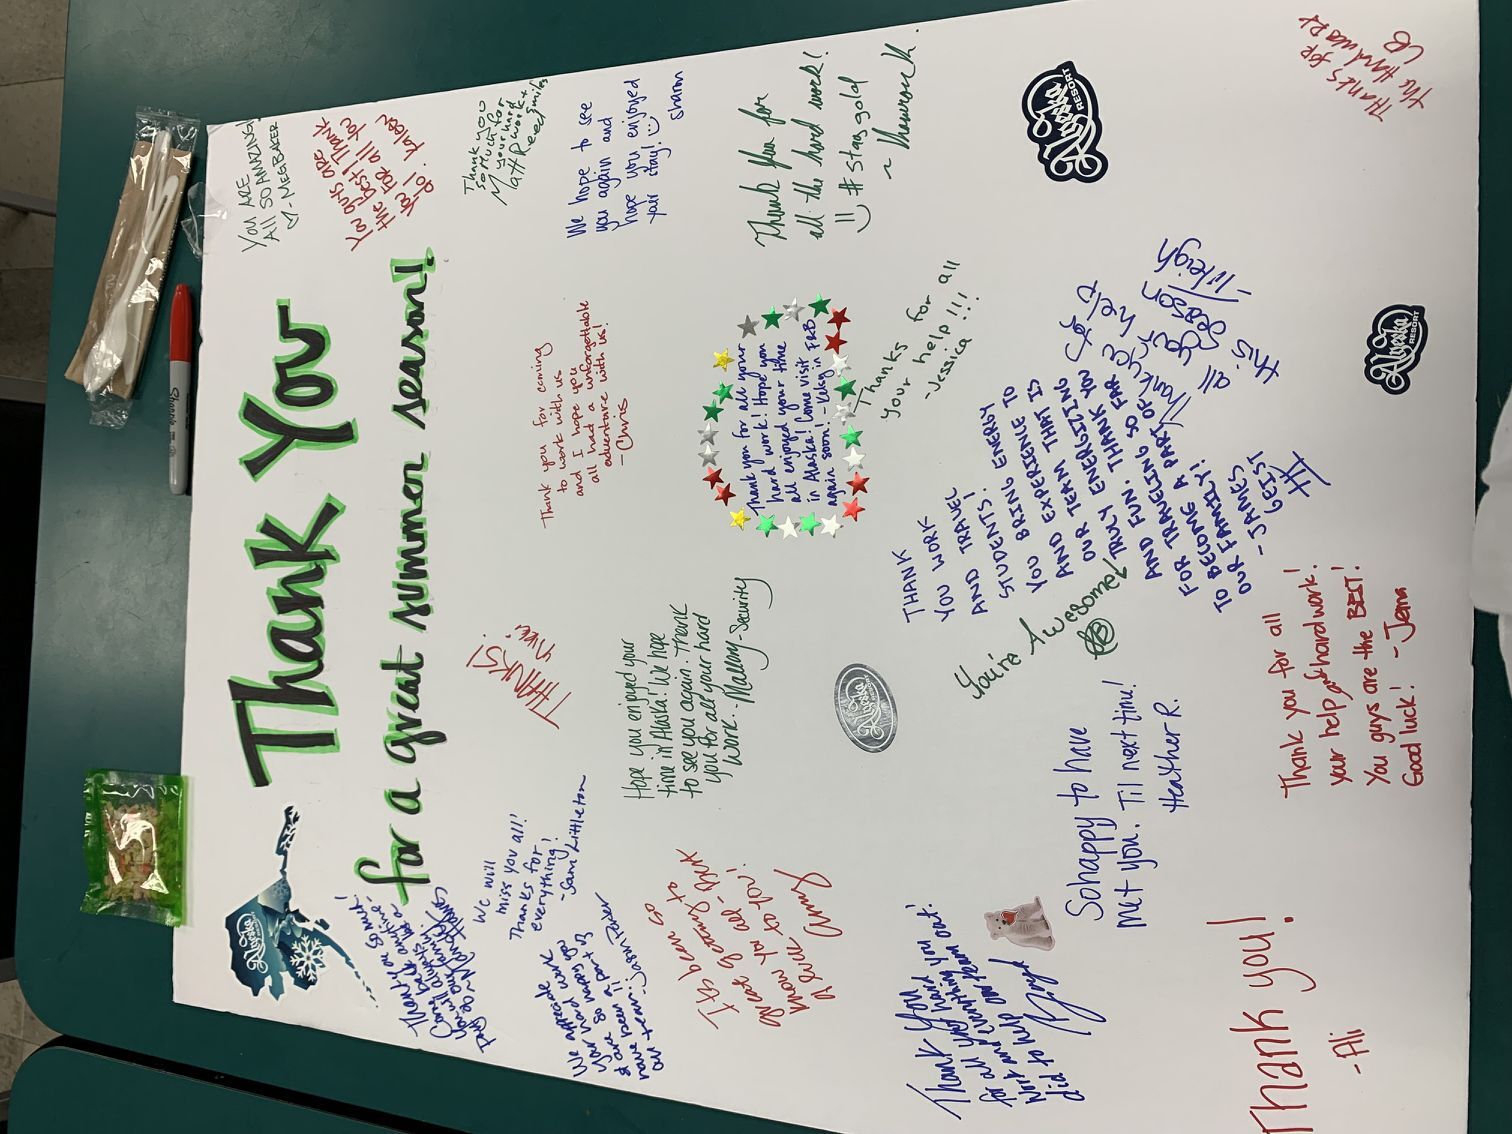 Thank You
for a great summer season!
Alyeska
RESORT
Thank you so much!
Come back anytime -
you will always be a
part of our family
We will
miss you all!
Thanks for
everything!
-Sam Littleton
We appreciate
your hard work
So happy to
have been a part of
our team!
It's been so
great getting to
know you all - Best
of luck to you!
Amy
Thank You
for all your hard
work and everything you
did to help our team out!
Thank you!
-Ali
THANKS!
Hope you enjoyed your
time in Alaska! We hope
to see you again. Thank
you for all your hard
work. -Mallory-Security
Alyeska
RESORT
You're Awesome
So happy to have
met you. Til next time!
Heather R.
Thank you for all
your help and hard work!
You guys are the BEST!
Good luck! -Jena
Thank you for coming
to work with us
and I hope you
all had a unforgettable
adventure with us!
- Chris
Thank you for all your
hard work! Hope you
all enjoyed your time
in Alaska! Come visit
again soon!
THANK
YOU WORK
AND TRAVEL
STUDENTS!
YOU BRING ENERGY TO
AND EXPERIENCE TO
OUR TEAM THAT IS
TRULY ENERGIZING
AND FUN. THANK YOU
FOR TRAVELING SO FAR
TO BECOME A PART OF
OUR FAMILY!
- JAMES
GEIST
Thanks for all
your help!!!
-Jessica
Thank you for
all your help
this season
YOU ARE
All SO AMAZING
- MEG BAKER
You guys are
the best! Thank
you for all you
do!
Thank you
so much for
your hard
work +
smiles
Matt Reed
We hope to see
you again and
hope you enjoyed
your stay!
Sharon
Thank you for
all the hard work!
#staygold
Alyeska
RESORT
Alyeska
RESORT
Thanks for
the hard work
Sharpie